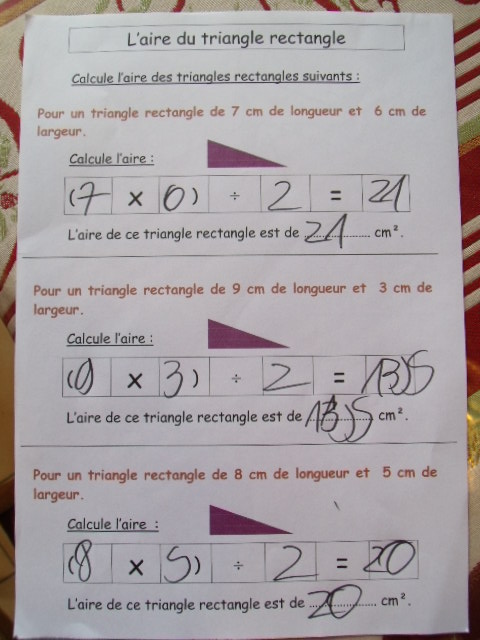 L'aire du triangle rectangle
Calcule l'aire des triangles rectangles suivants :
Pour un triangle rectangle de 7 cm de longueur et 6 cm de
largeur.
Calcule l'aire :
(7 x 6) ÷ 2 = 21
L'aire de ce triangle rectangle est de 21 cm².
Pour un triangle rectangle de 9 cm de longueur et 3 cm de
largeur.
Calcule l'aire :
(9 x 3) ÷ 2 = 13,5
L'aire de ce triangle rectangle est de 13,5 cm².
Pour un triangle rectangle de 8 cm de longueur et 5 cm de
largeur.
Calcule l'aire :
(8 x 5) ÷ 2 = 20
L'aire de ce triangle rectangle est de 20 cm².